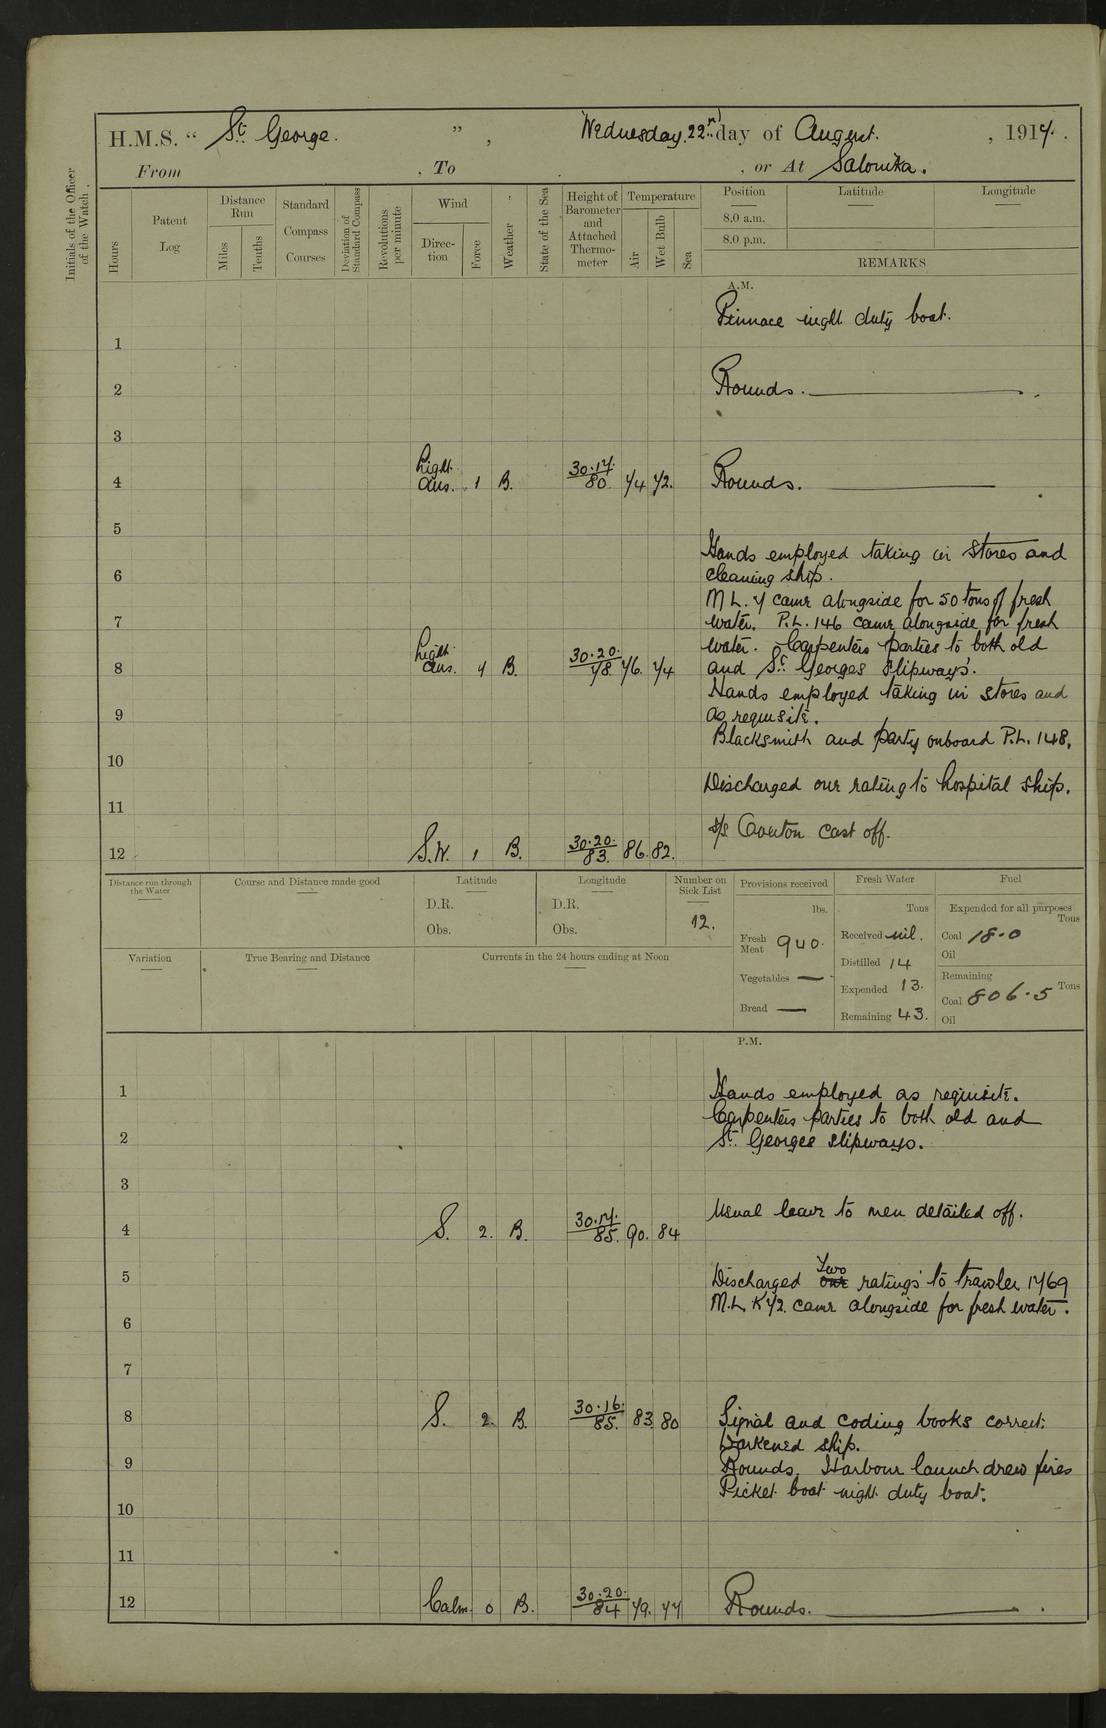 H.M.S. “ St. George. ” , Wednesday 22nd day of August. , 1917.
From , To , or At Salonika.
Initials of the Officer of the Watch.
Hours
Patent Log
Distance Run
Miles
Tenths
Standard Compass Courses
Deviation of Standard Compass
Revolutions per minute
Wind
Direction
Force
Weather
State of the Sea
Height of Barometer and Attached Thermometer
Temperature
Air
Wet Bulb
Sea
Position Latitude Longitude
8.0 a.m.
8.0 p.m.
REMARKS
A.M.
Pinnace night duty boat.
1
2 Rounds.
3
4 Light airs. 1 B. 30.17. 80 74 72. Rounds.
5
Hands employed taking in stores and
6 cleaning ship.
M L. 7 came alongside for 50 tons of fresh
7 water. P.L. 146 came alongside for fresh
water. Carpenters parties to both old
8 Light airs. 1 B. 30.20. 78. 76. 74 and St. Georges slipways.
Hands employed taking in stores and
9 as requisite.
Blacksmith and party onboard P.L. 148.
10
Discharged one rating to hospital ship.
11
S/S Canton cast off.
12 S.W. 1 B. 30.20. 83. 86. 82.
Distance run through the Water
Course and Distance made good
Latitude
D.R.
Obs.
Longitude
D.R.
Obs.
Number on Sick List
12.
Provisions received
lbs.
Fresh Meat 940.
Vegetables —
Bread —
Fresh Water
Tons
Received nil.
Distilled 14
Expended 13.
Remaining 43.
Fuel
Expended for all purposes
Tons
Coal 18.0
Oil
Remaining
Tons
Coal 806.5
Oil
Variation
True Bearing and Distance
Currents in the 24 hours ending at Noon
P.M.
1 Hands employed as requisite.
Carpenters parties to both old and
2 St. Georges slipways.
3
Usual leave to men detailed off.
4 S. 2. B. 30.17. 85. 90. 84
5 Discharged one Two ratings to trawler 1769
M.L K72. came alongside for fresh water.
6
7
8 S. 2. B. 30.16. 85. 83. 80 Signal and coding books correct.
Darkened ship.
9 Rounds. Harbour launch drew fires
Picket boat night duty boat.
10
11
12 Calm. 0 B. 30.20. 84 79. 77 Rounds.